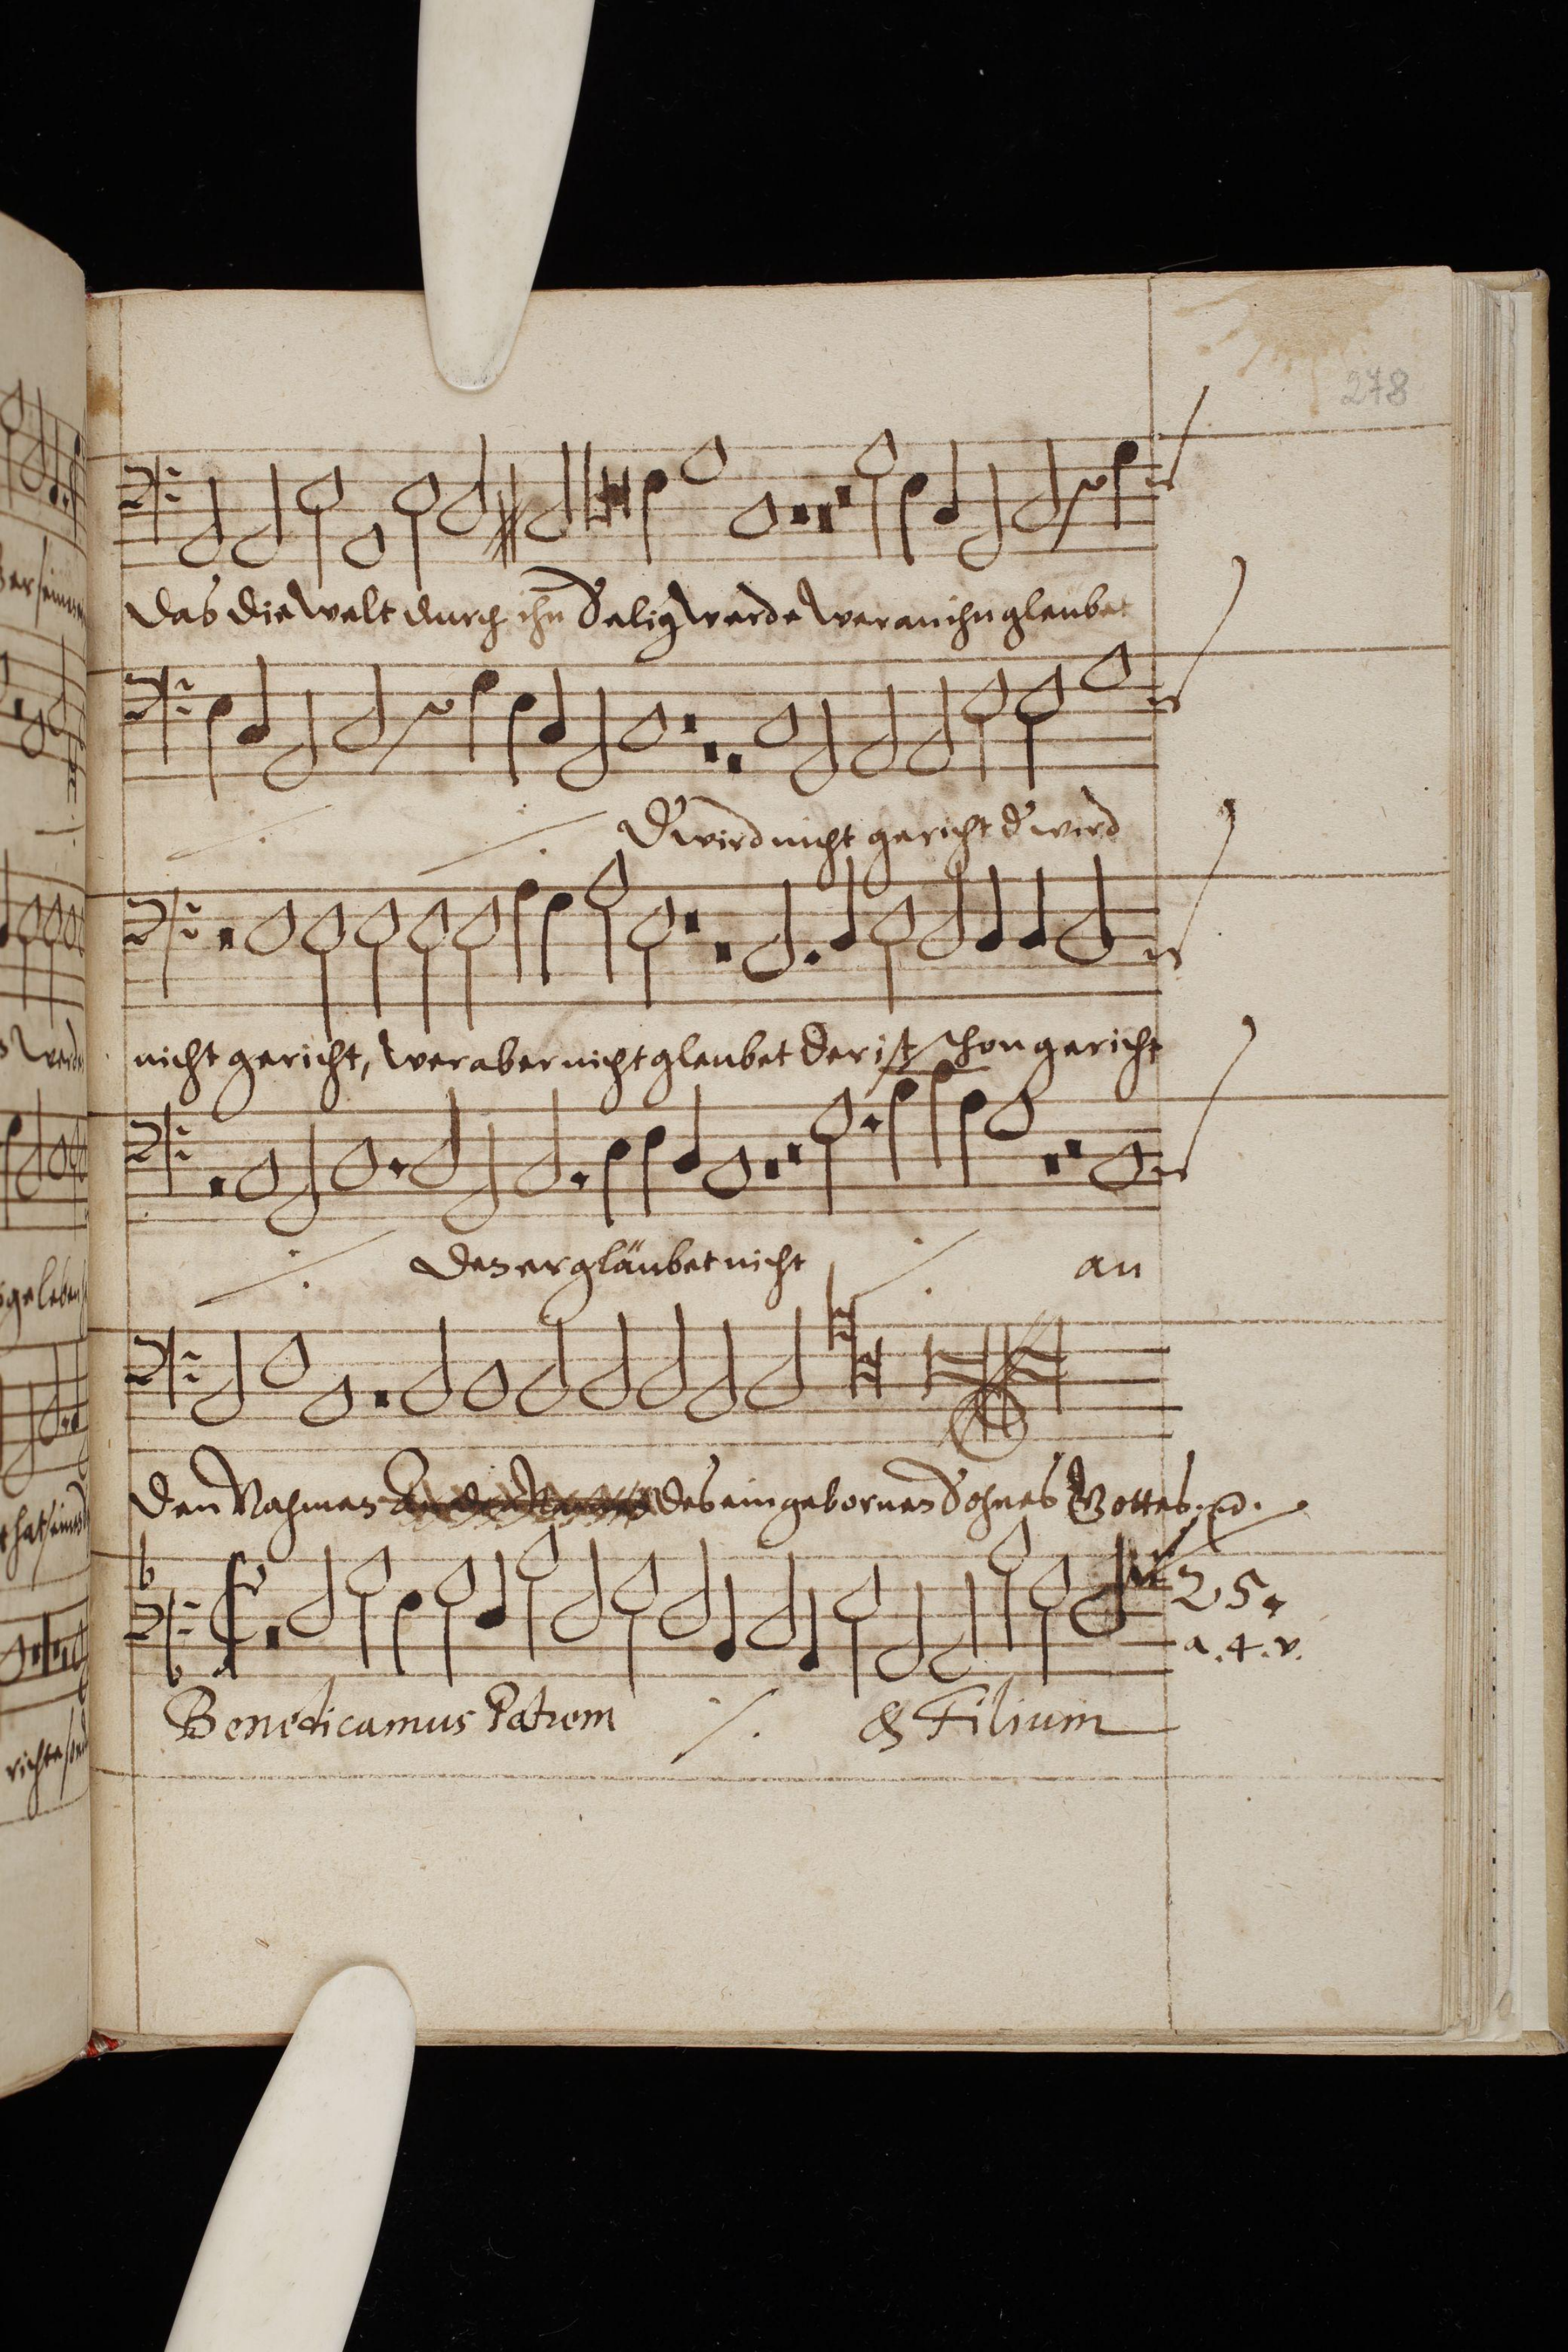 278
Das die Welt durch ihn Selig werde wer an ihn glaubet
D' wird nicht gericht d' wird
nicht gericht, wer aber nicht glaubet der ist schon gericht
den er gläubet nicht ·/. an
den Nahmen des eingebornen Sohnes Gottes
25.
a. 4. v.
Benedicamus Patrem ·/. & Filium